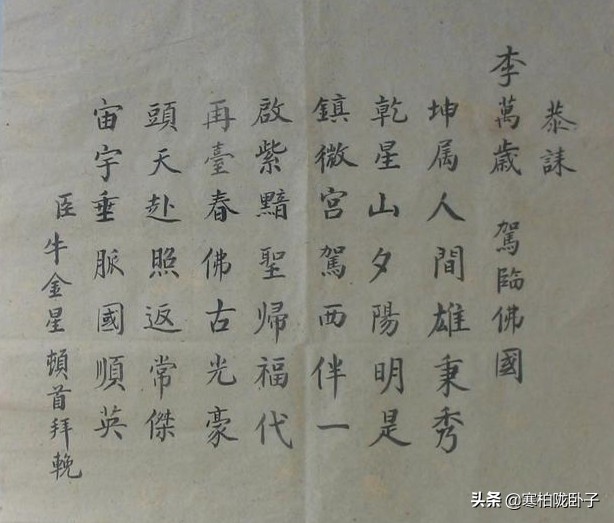 恭誄
李萬歲 駕臨佛國
坤属人間雄秉秀
乾星山夕陽明是
鎮微宮駕西伴一
啟紫黯聖歸福代
再臺春佛古光豪
頭天赴照返常傑
宙宇垂脈國順英
臣牛金星頓首拜輓
头条 @寒柏陇卧子